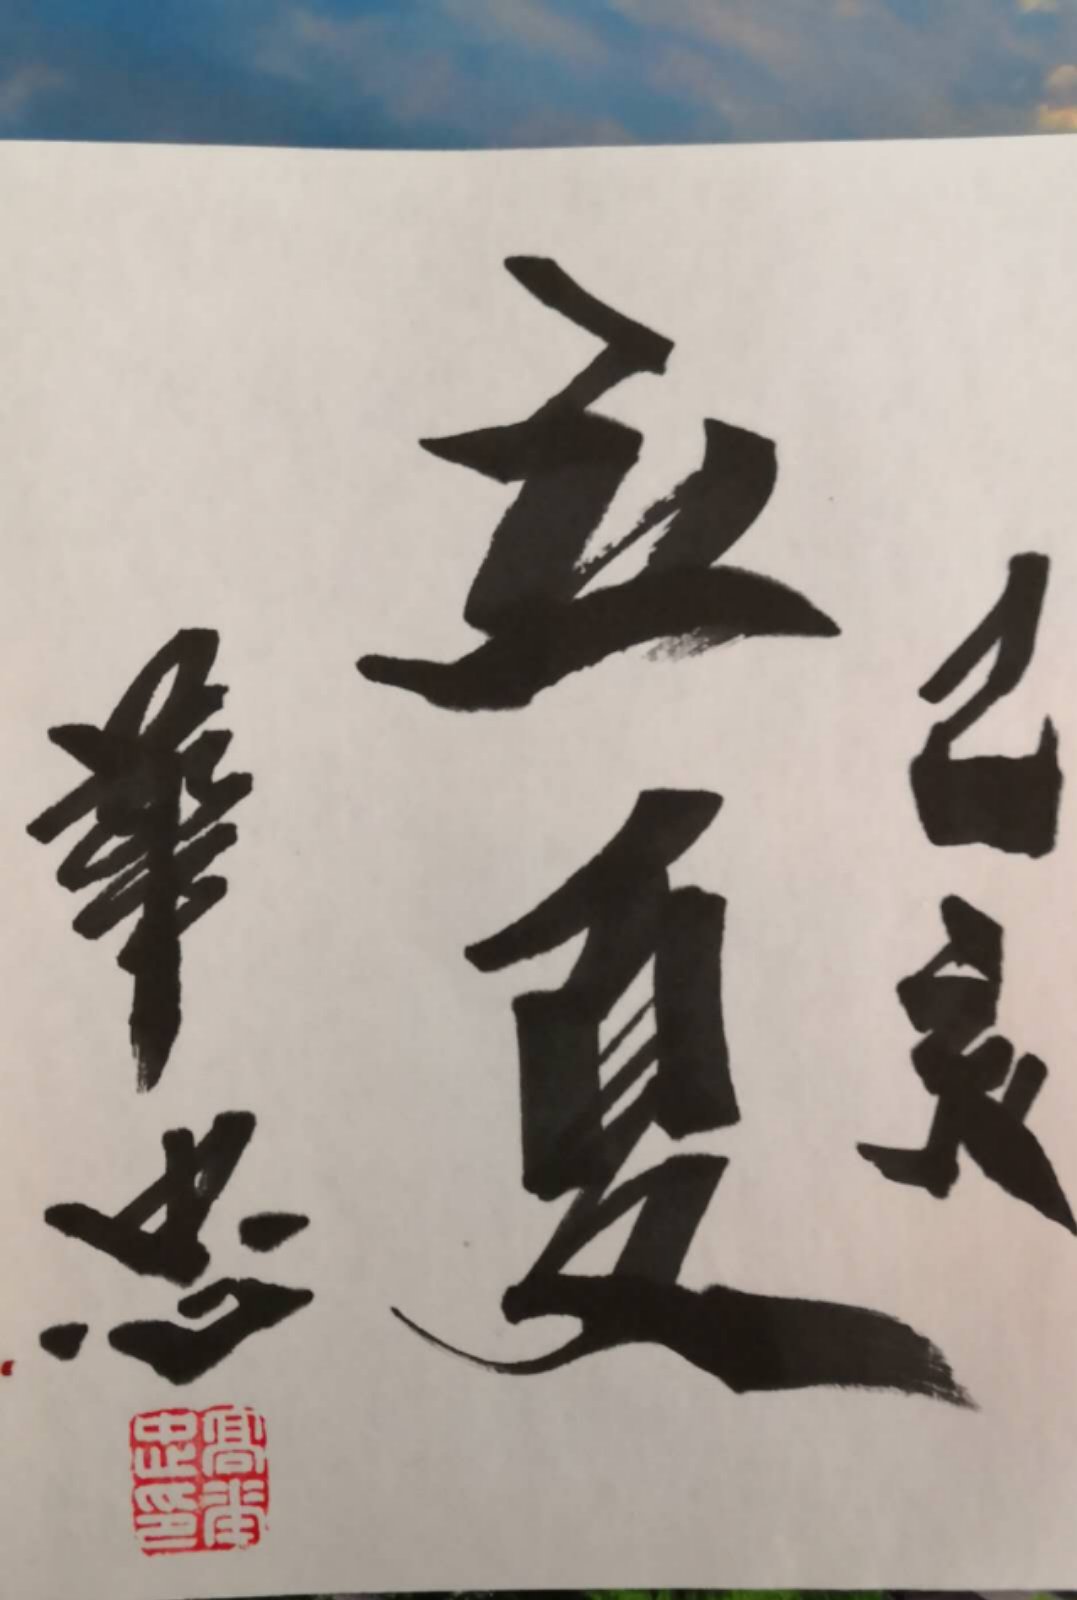 己亥
立夏
華忠
高華
忠印